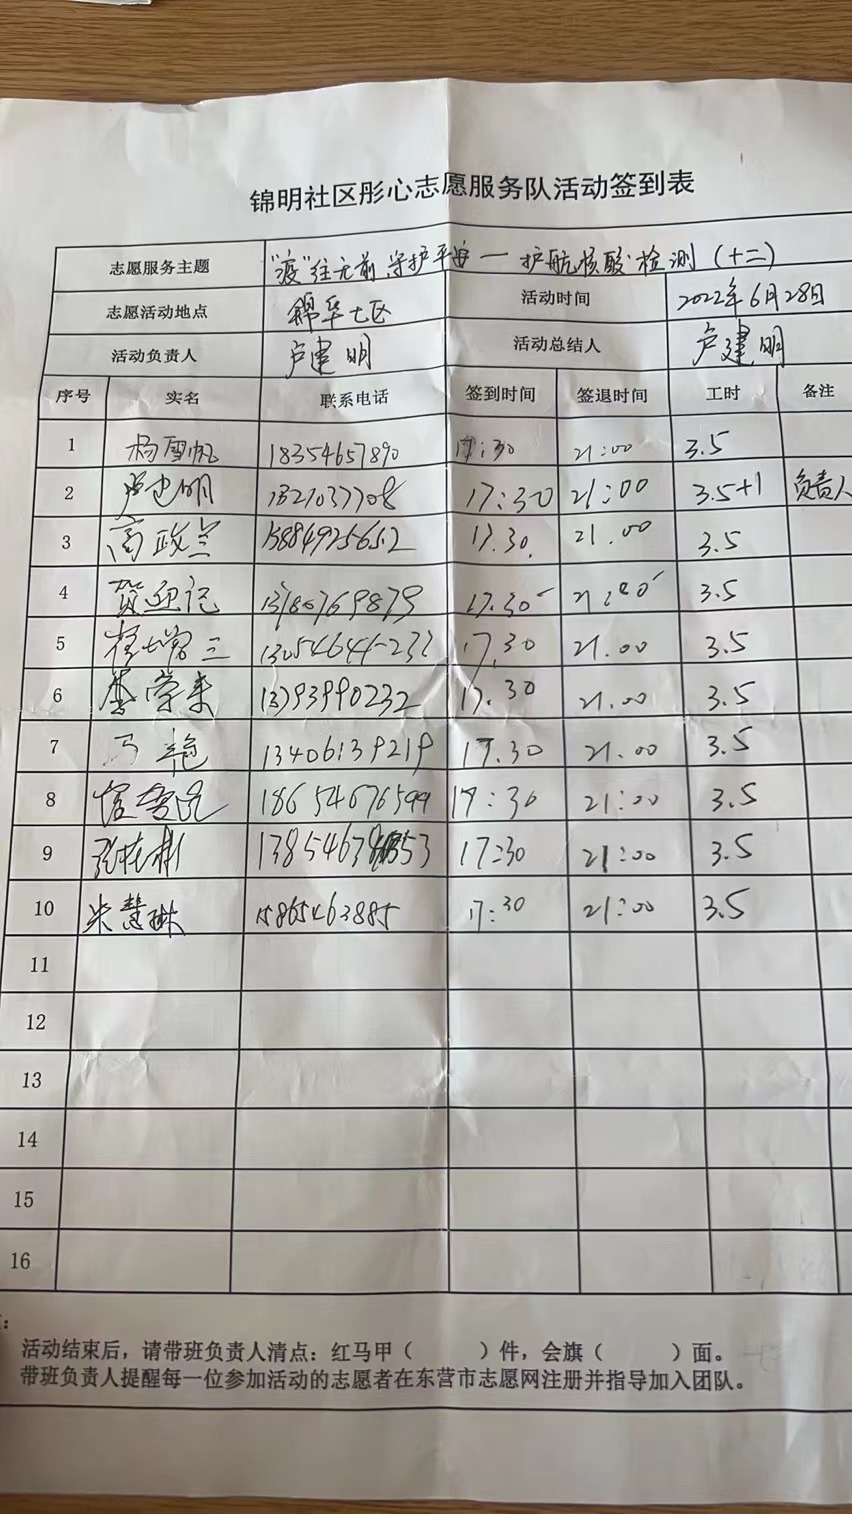 锦明社区彤心志愿服务队活动签到表
志愿服务主题 "疫"往无前 守护平安 — 护航核酸检测（十二）
志愿活动地点 锦华七区 活动时间 2022年6月28日
活动负责人 卢建明 活动总结人 卢建明
序号 实名 联系电话 签到时间 签退时间 工时 备注
1 杨雪帆 18354657890 17:30 21:00 3.5
2 卢建明 17:30 21:00 3.5+1 负责人
3 高政兰 15884925652 17.30. 21.00 3.5
4 贺迎记 17.30 21:00 3.5
5 17.30 21.00 3.5
6 13793990232 17.30 21.00 3.5
7 马艳 13406139219 17.30 21.00 3.5
8 18654676599 17:30 21:00 3.5
9 17:30 21:00 3.5
10 宋慧琳 15865463885 17:30 21:00 3.5
11
12
13
14
15
16
活动结束后，请带班负责人清点：红马甲（ ）件，会旗（ ）面。
带班负责人提醒每一位参加活动的志愿者在东营市志愿网注册并指导加入团队。